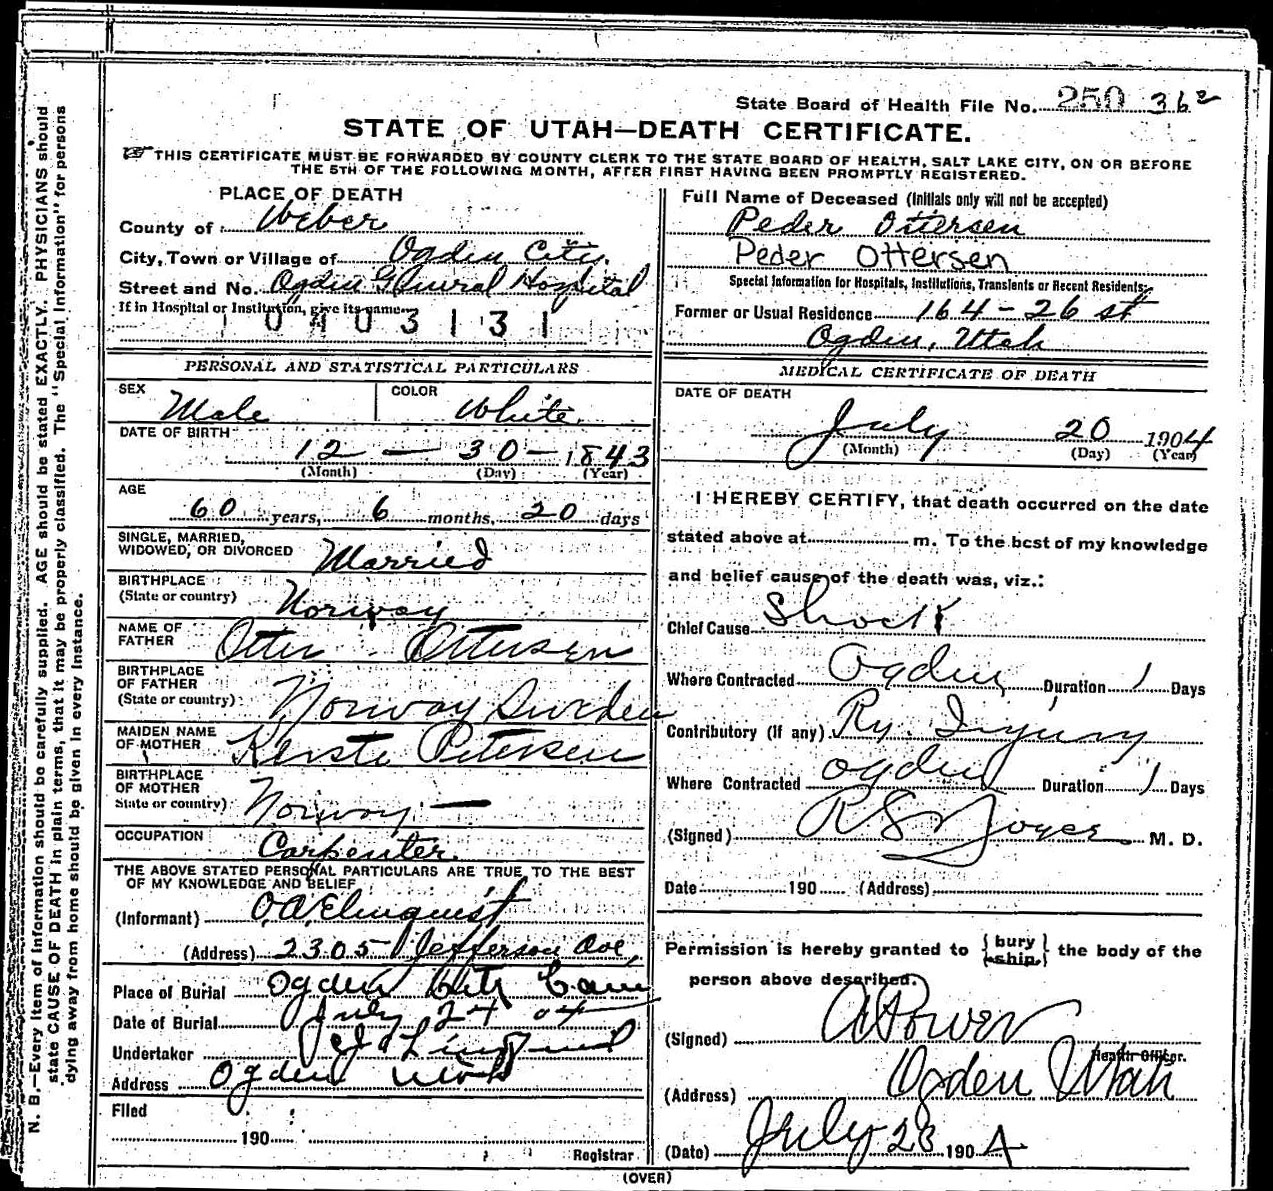 State Board of Health File No. 250 362
STATE OF UTAH—DEATH CERTIFICATE.
THIS CERTIFICATE MUST BE FORWARDED BY COUNTY CLERK TO THE STATE BOARD OF HEALTH, SALT LAKE CITY, ON OR BEFORE
THE 5TH OF THE FOLLOWING MONTH, AFTER FIRST HAVING BEEN PROMPTLY REGISTERED.
PLACE OF DEATH
County of Weber
City, Town or Village of Ogden City.
Street and No. Ogden General Hospital
If in Hospital or Institution, give its name
0403131
PERSONAL AND STATISTICAL PARTICULARS
SEX Male COLOR White
DATE OF BIRTH
12 — 30 — 1843
(Month) (Day) (Year)
AGE
60 years, 6 months, 20 days
SINGLE, MARRIED,
WIDOWED, OR DIVORCED Married
BIRTHPLACE
(State or country) Norway
NAME OF
FATHER Otter Ottersen
BIRTHPLACE
OF FATHER
(State or country) Norway Sweden
MAIDEN NAME
OF MOTHER Kerste Petersen
BIRTHPLACE
OF MOTHER
State or country) Norway —
OCCUPATION Carpenter.
THE ABOVE STATED PERSONAL PARTICULARS ARE TRUE TO THE BEST
OF MY KNOWLEDGE AND BELIEF
(Informant) O.A. Elmquist
(Address) 2305 Jefferson Ave,
Place of Burial Ogden City Cem
Date of Burial July 24 04
Undertaker
Address Ogden Utah
Filed
190
Registrar
Full Name of Deceased (Initials only will not be accepted)
Peder Ottersen
Peder Ottersen
Special Information for Hospitals, Institutions, Transients or Recent Residents:
Former or Usual Residence 164 - 26 st
Ogden, Utah
MEDICAL CERTIFICATE OF DEATH
DATE OF DEATH
July 20 1904
(Month) (Day) (Year)
I HEREBY CERTIFY, that death occurred on the date
stated above at m. To the best of my knowledge
and belief cause of the death was, viz.:
Chief Cause Shock
Where Contracted Ogden, Duration 1 Days
Contributory (If any) Ry. Injury
Where Contracted Ogden Duration 1 Days
(Signed) M. D.
Date 190 (Address)
Permission is hereby granted to { bury ship } the body of the
person above described.
(Signed) A Power
Health Officer.
(Address) Ogden Utah
(Date) July 23 1904
(OVER)
N. B.—Every item of information should be carefully supplied. AGE should be stated EXACTLY. PHYSICIANS should
state CAUSE OF DEATH in plain terms, that it may be properly classified. The "Special Information" for persons
dying away from home should be given in every instance.